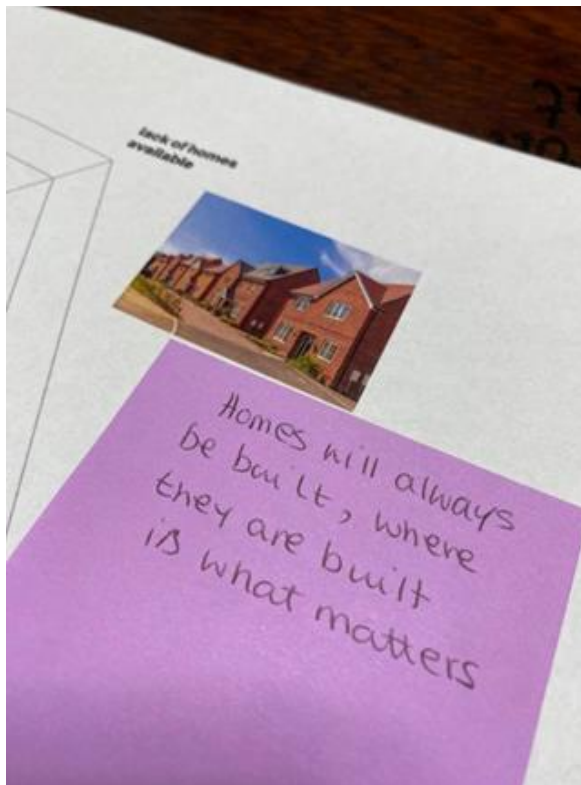 lack of homes
available
Homes will always
be built, where
they are built
is what matters